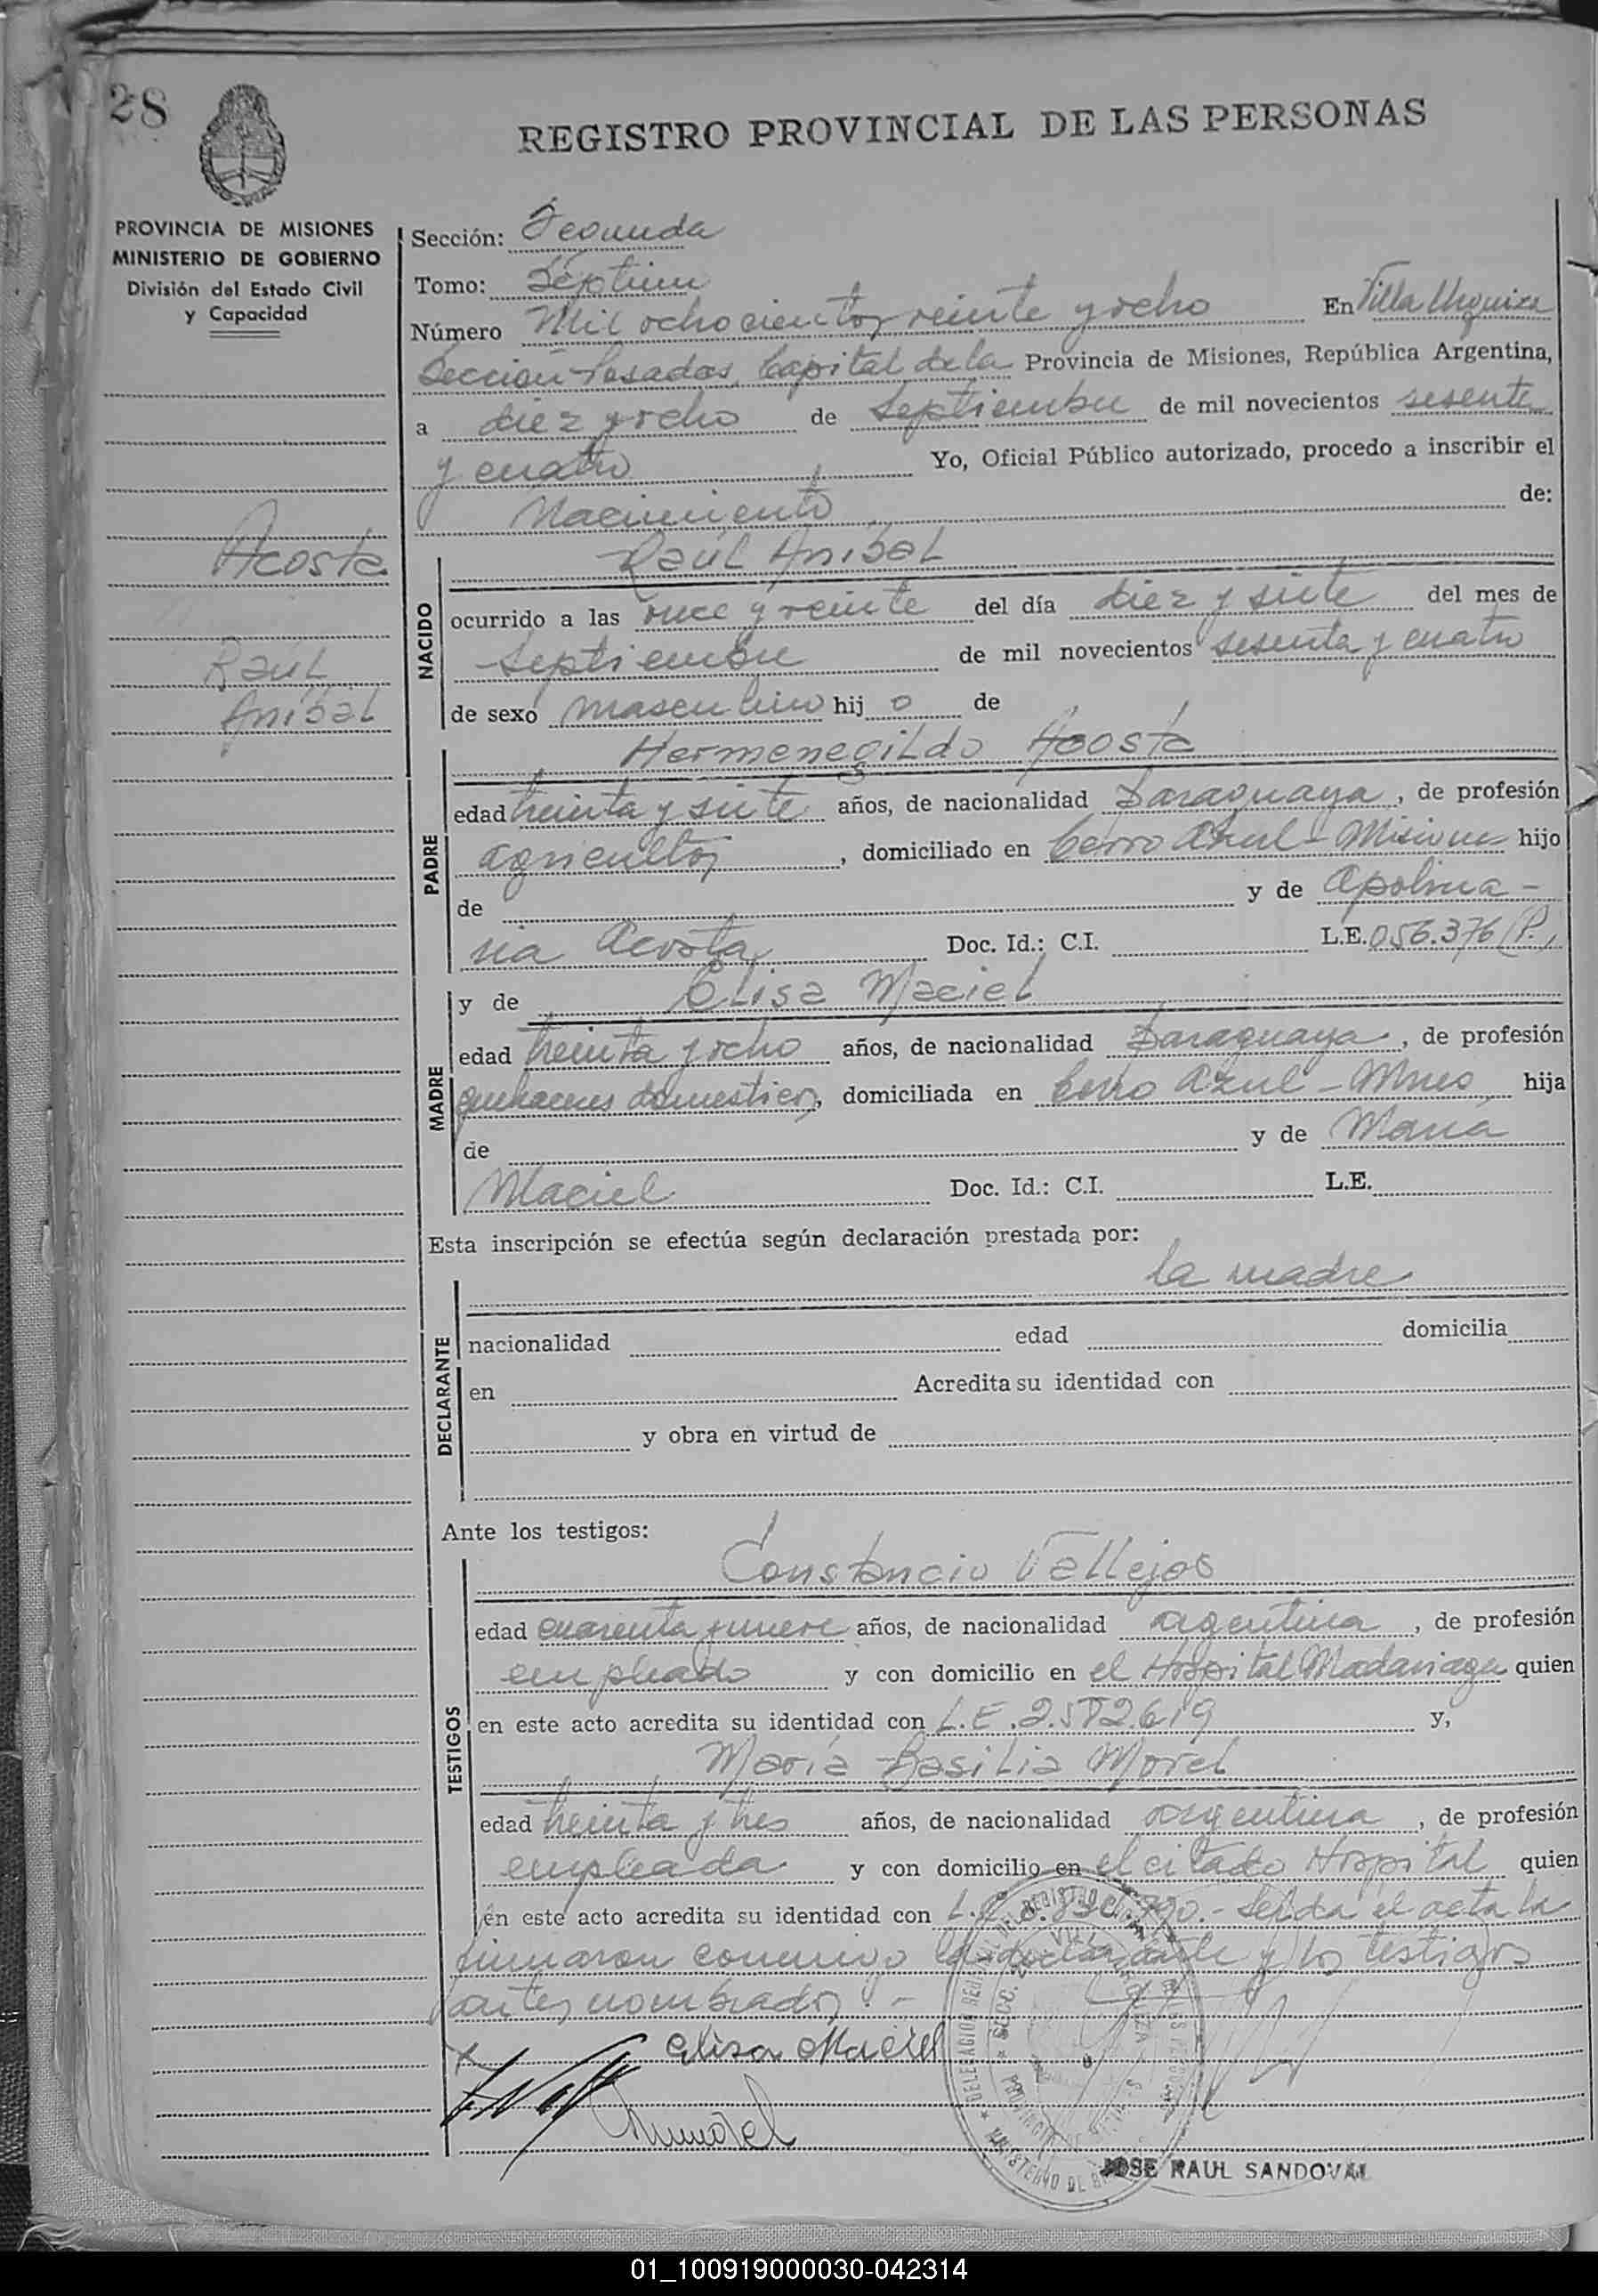 28
REGISTRO PROVINCIAL DE LAS PERSONAS
PROVINCIA DE MISIONES
MINISTERIO DE GOBIERNO
División del Estado Civil
y Capacidad
Acosta
Raúl
Aníbal
Sección: Segunda
Tomo: Séptimo
Número Mil ochocientos veinte y ocho En Villa Urquiza
Sección Posadas, Capital de la Provincia de Misiones, República Argentina,
a diez y ocho de Septiembre de mil novecientos sesenta
y cuatro Yo, Oficial Público autorizado, procedo a inscribir el
Nacimiento de:
NACIDO
Raúl Aníbal
ocurrido a las once y veinte del día diez y siete del mes de
Septiembre de mil novecientos sesenta y cuatro
de sexo masculino hij o de
PADRE
Hermenegildo Acosta
edad treinta y siete años, de nacionalidad Paraguaya, de profesión
agricultor, domiciliado en Cerro Azul - Misiones hijo
de y de Apolina-
ria Acosta Doc. Id.: C.I. L.E. 056.376 (P.)
MADRE
y de Elisa Maciel
edad treinta y ocho años, de nacionalidad Paraguaya, de profesión
quehaceres domesticos, domiciliada en Cerro Azul - Mnes hija
de y de María
Maciel Doc. Id.: C.I. L.E.
Esta inscripción se efectúa según declaración prestada por:
DECLARANTE
la madre
nacionalidad edad domicilia
en Acredita su identidad con
y obra en virtud de
Ante los testigos:
TESTIGOS
Constancio Vallejos
edad cuarenta y nueve años, de nacionalidad argentina, de profesión
empleado y con domicilio en el Hospital Madariaga quien
en este acto acredita su identidad con L.E. 2.582.619 y,
María Basilia Morel
edad treinta y tres años, de nacionalidad argentina, de profesión
empleada y con domicilio en el citado Hospital quien
en este acto acredita su identidad con L.C. Leida el acta la
firmaron conmigo la declarante y los testigos
antes nombrados.-
Elisa Maciel
JOSE RAUL SANDOVAL
01_100919000030-042314